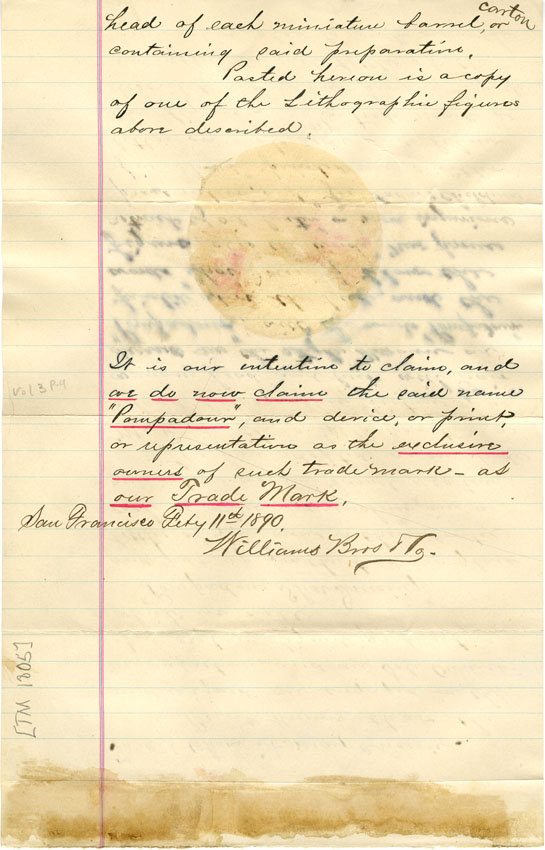 head of each miniature barrel, or carton
containing said preparation.
Pasted hereon is a copy
of one of the Lithographic figures
above described.
It is our intention to claim, and
we do now claim the said name
"Pompadour", and device, or print,
or representation as the exclusive
owners of such trade mark – as
our Trade Mark.
San Francisco Feby 11th 1890.
Williams Bros & Co.
Vol 3 P.4
[TM 1805]